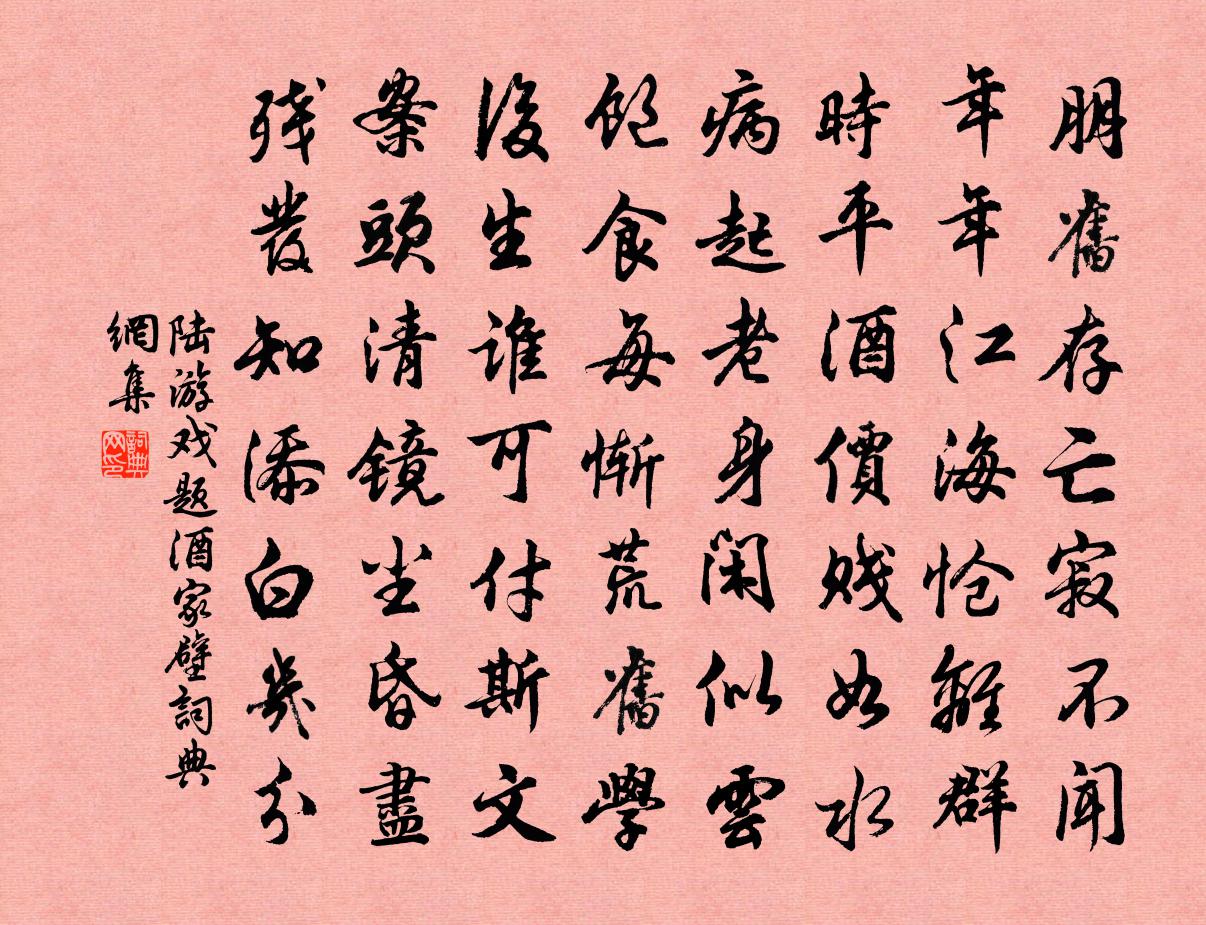 朋舊存亡寂不聞
年年江海怆離群
時平酒價賤如水
病起老身閑似雲
飽食每慚荒舊學
後生誰可付斯文
案頭清鏡尘昏盡
残發知添白幾分
陆游戏题酒家壁詞典
網集
詞典网印